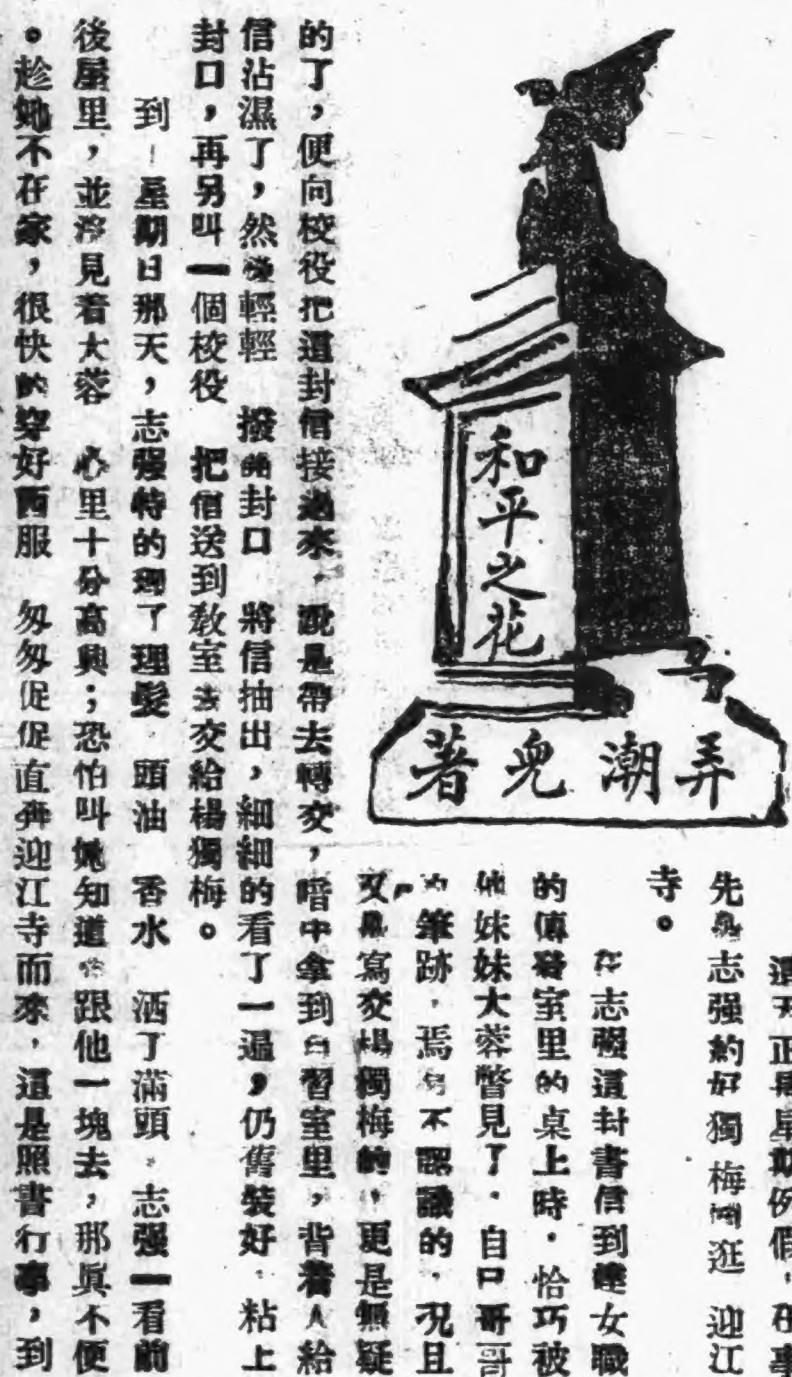 和平之花
弄潮兒著
這天正是星期例假,在事
先是志强約好獨梅同逛 迎江
寺。
在志强這封書信到達女職
的傳發室里的桌上時,恰巧被
他妹妹大蓉瞥見了,自己哥哥
的筆跡,焉有不認識的,况且
又是寫交楊獨梅的,更是無疑
的了,便向校役把這封信接過來,說是帶去轉交,暗中拿到自習室里,背着人給
信沾濕了,然後輕輕 撥開封口 將信抽出,細細的看了一遍,仍舊裝好,粘上
封口,再另叫一個校役 把信送到教室去交給楊獨梅。
到 星期日那天,志强特的理了理髮 頭油 香水 洒了滿頭,志强一看前
後屋里,並沒見着大蓉 心里十分高興;恐怕叫她知道 跟他一塊去,那眞不便
。趁她不在家,很快的穿好西服 匆匆促促直奔迎江寺而來,這是照書行事,到